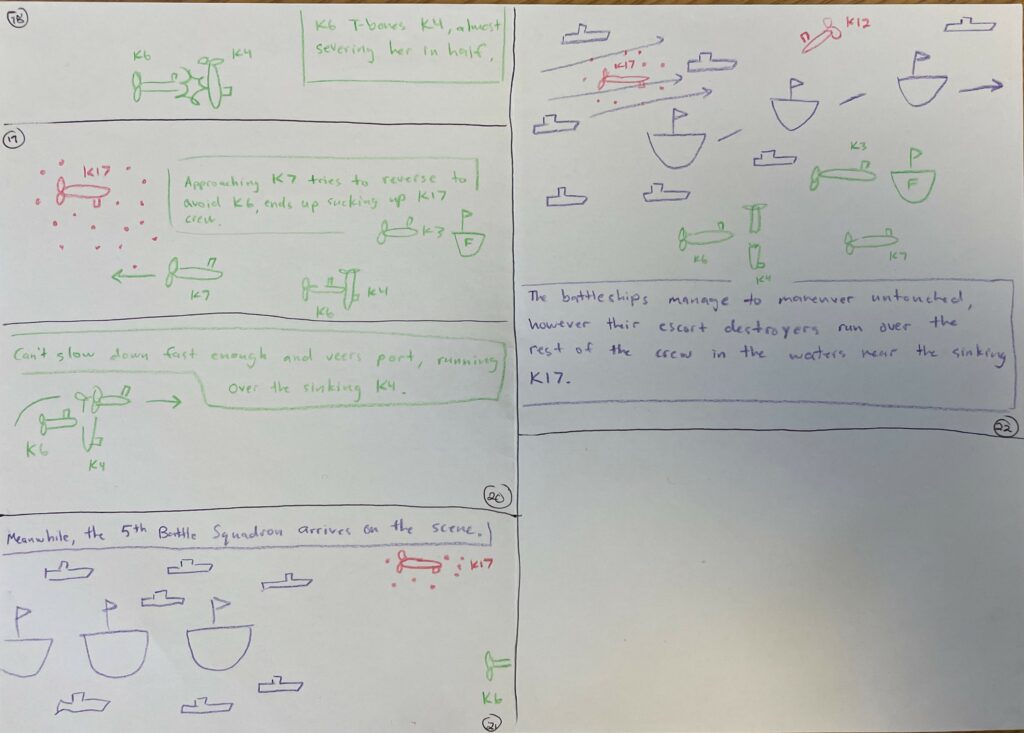 18
K6 T-bones K4, almost
severing her in half.
K6
K4
19
K17
Approaching K7 tries to reverse to
avoid K6, ends up sucking up K17
crew.
K3
F
K7
K6
K4
Can't slow down fast enough and veers port, running
over the sinking K4.
K6
K4
20
Meanwhile, the 5th Battle Squadron arrives on the scene.
K17
K6
21
K12
K17
K3
F
K6
K4
K7
The battleships manage to maneuver untouched,
however their escort destroyers run over the
rest of the crew in the waters near the sinking
K17.
22